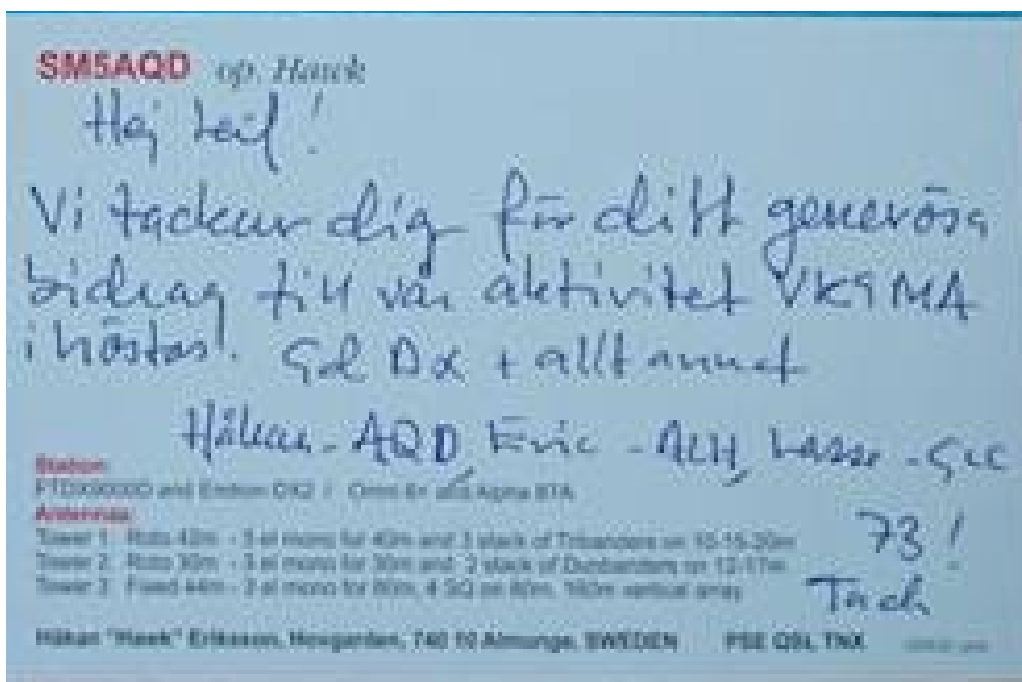 SM5AQD op. Hawk
Hej Leif!
Vi tackar dig för ditt generösa
bidrag till vår aktivitet VK9MA
i höstas. Gd DX + allt annat
Håkan - AQD, Eric - ALH, Lasse - GLC
Station:
FTDX9000D and Emtron DX2 / Omni 6+ and Alpha 87A
Antennas:
Tower 1: Roto 42m - 3 el mono for 40m and 3 stack of Tribanders on 10-15-20m
Tower 2: Roto 30m - 3 el mono for 30m and 2 stack of Duobanders on 12-17m
Tower 3: Fixed 44m - 3 el mono for 80m, 4 SQ on 80m, 160m vertical array
73!
Tack
Håkan "Hawk" Eriksson, Hovgarden, 740 10 Almunge, SWEDEN PSE QSL TNX